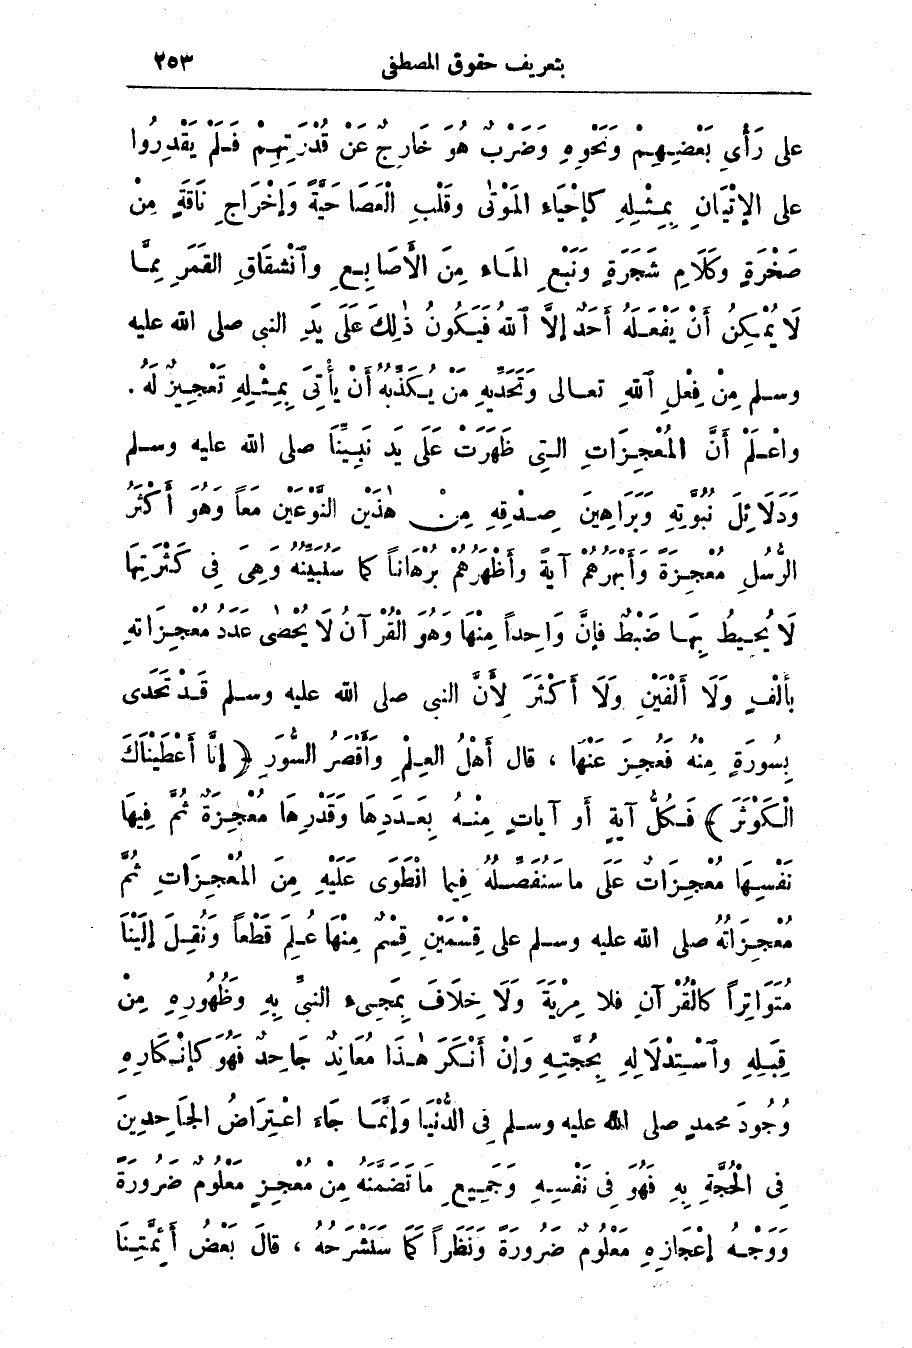 بتعريف حقوق المصطفى ٢٥٣
على رَأْىِ بَعْضِهِمْ وَنَحْوِهِ وَضَرْبٌ هُوَ خَارِجٌ عَنْ قُدْرَتِهِمْ فَلَمْ يَقْدِرُوا
على الإتْيَانِ بِمِثْلِهِ كإحْيَاءِ المَوْتَى وقَلْبِ الْعَصَا حَيَّةً وَإخْرَاجِ نَاقَةٍ مِنْ
صَخْرَةٍ وكَلَامِ شَجَرَةٍ وَنَبْعِ المَاءِ مِنَ الأَصَابِعِ وٱنْشِقَاقِ القَمَرِ مِمَّا
لَا يُمْكِنُ أَنْ يَفْعَلَهُ أَحَدٌ إلَّا ٱللهُ فَيَكُونُ ذٰلِكَ عَلَى يَدِ النبى صلى الله عليه
وسلم مِنْ فِعْلِ ٱللهِ تعالى وَتَحَدِّيهِ مَنْ يُكَذِّبُهُ أَنْ يأْتِىَ بِمِثْلِهِ تَعْجِيزٌ لَهُ .
واعْلَمْ أَنَّ المُعْجِزَاتِ التِى ظَهَرَتْ عَلَى يَدِ نَبِيِّنَا صلى الله عليه وسلم
وَدَلَائِلَ نُبُوَّتِهِ وَبَرَاهِينَ صِدْقِهِ مِنْ هٰذَيْنِ النَّوْعَيْنِ مَعَاً وَهُوَ أَكْثَرُ
الرُّسُلِ مُعْجِزَةً وَأَبْهَرُهُمْ آيَةً وأَظْهَرُهُمْ بُرْهَاناً كما سَنُبَيِّنُهُ وَهِىَ فِى كَثْرَتِهَا
لَا يُحِيطُ بِهَا ضَبْطٌ فإنَّ وَاحِداً مِنْهَا وَهُوَ الْقُرْآنُ لَا يُحْصٰى عَدَدُ مُعْجِزَاتِهِ
بأَلْفٍ وَلَا أَلْفَيْنِ وَلَا أَكْثَرَ لِأَنَّ النبى صلى الله عليه وسلم قَدْ تَحَدَى
بِسُورَةٍ مِنْهُ فَعُجِزَ عَنْهَا ، قال أَهْلُ العِلْمِ وَأَقْصَرُ السُّوَرِ ﴿ إنَّا أَعْطَيْنَاكَ
الْكَوْثَرَ ﴾ فَكُلُّ آيَةٍ أَو آيَاتٍ مِنْهُ بِعَدَدِهَا وَقَدْرِهَا مُعْجِزَةٌ ثُمَّ فِيهَا
نَفْسِهَا مُعْجِزَاتٌ عَلَى ما سَنُفَصِّلُهُ فِيما انْطَوَى عَلَيْهِ مِنَ المُعْجِزَاتِ ثُمَّ
مُعْجِزَاتُهُ صلى الله عليه وسلم على قِسْمَيْنِ قِسْمٌ مِنْهَا عُلِمَ قَطْعاً وَنُقِلَ إلَيْنَا
مُتَوَاتِراً كالْقُرْآنِ فلا مِرْيَةَ وَلَا خِلَافَ بِمَجِىءِ النبىِّ بِهِ وظُهُورِهِ مِنْ
قِبَلِهِ وٱسْتِدْلَالِهِ بِحُجَّتِهِ وَإنْ أَنْكَرَ هٰذَا مُعَانِدٌ جَاحِدٌ فَهُوَ كإنْكَارِهِ
وُجُودَ محمدٍ صلى الله عليه وسلم فِى الدُّنْيَا وَإنَّمَا جَاءَ اعْتِرَاضُ الجَاحِدِينَ
فِى الْحُجَّةِ بِهِ فَهُوَ فِى نَفْسِهِ وَجَمِيعِ مَا تَضَمَّنَهُ مِنْ مُعْجِزٍ مَعْلُومٌ ضَرُورَةً
وَوَجْهُ إعْجَازِهِ مَعْلُومٌ ضَرُورَةً وَنَظَراً كَمَا سَنَشْرَحُهُ ، قالَ بَعْضُ أَئِمَّتِنَا